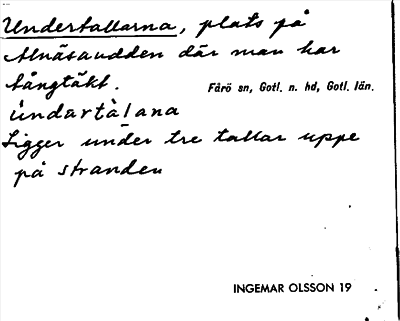 Undertallarna, plats på
Alnäsaudden där man har
tångtäkt.
Fårö sn, Gotl. n. hd, Gotl. län.
ùndartàlana
Ligger under tre tallar uppe
på stranden
INGEMAR OLSSON 19